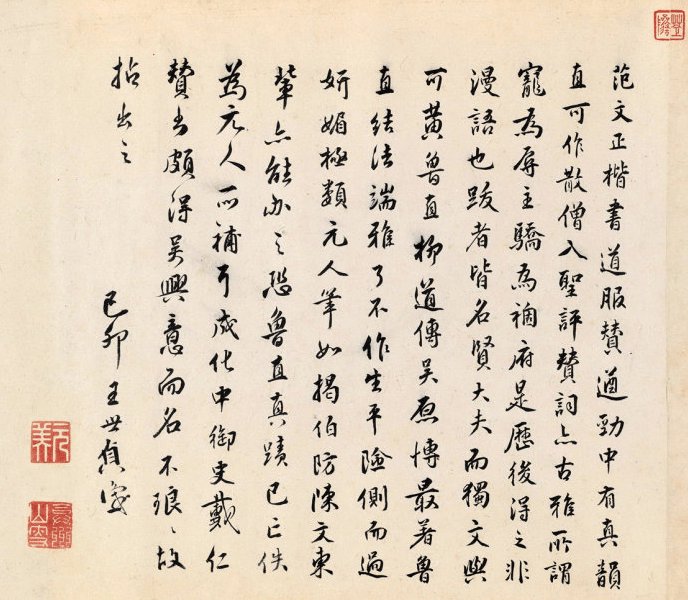 范文正楷書道服賛遒勁中有真韻
直可作散僧入聖評賛詞亦古雅所謂
寵為辱主驕為禍府是歷後得之非
漫語也跋者皆名賢大夫而獨文與
可黃魯直柳道傳吳原博最著魯
直結法端雅了不作生平險側而過
妍媚極類元人筆如揭伯防陳文東
輩亦能办之恐魯直真蹟已亡佚
為元人所補耳成化中御史戴仁
賛書頗得吳興意而名不琅〻故
拈出之
己卯王世貞識
元美